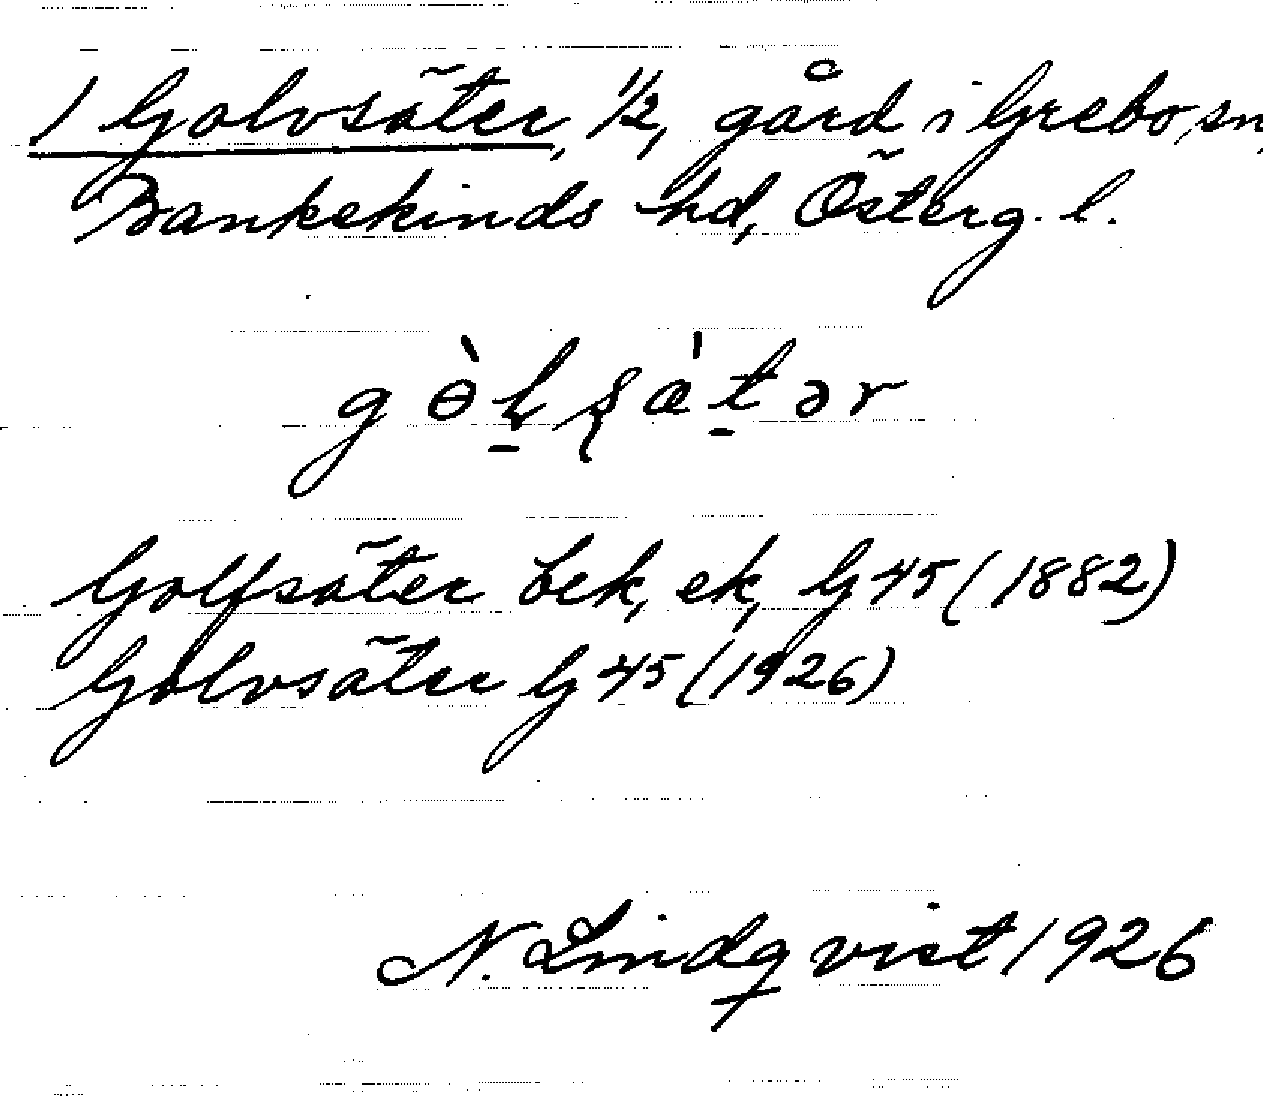 1 Golvsäter, 1/2, gård i Grebo, sn,
Bankekinds hd, Österg. l.
gɵ̀l̠ʂà't̠ər
Golfsäter bek, ek, G 45 (1882)
Golvsäter G 45 (1926)
N. Lindqvist 1926